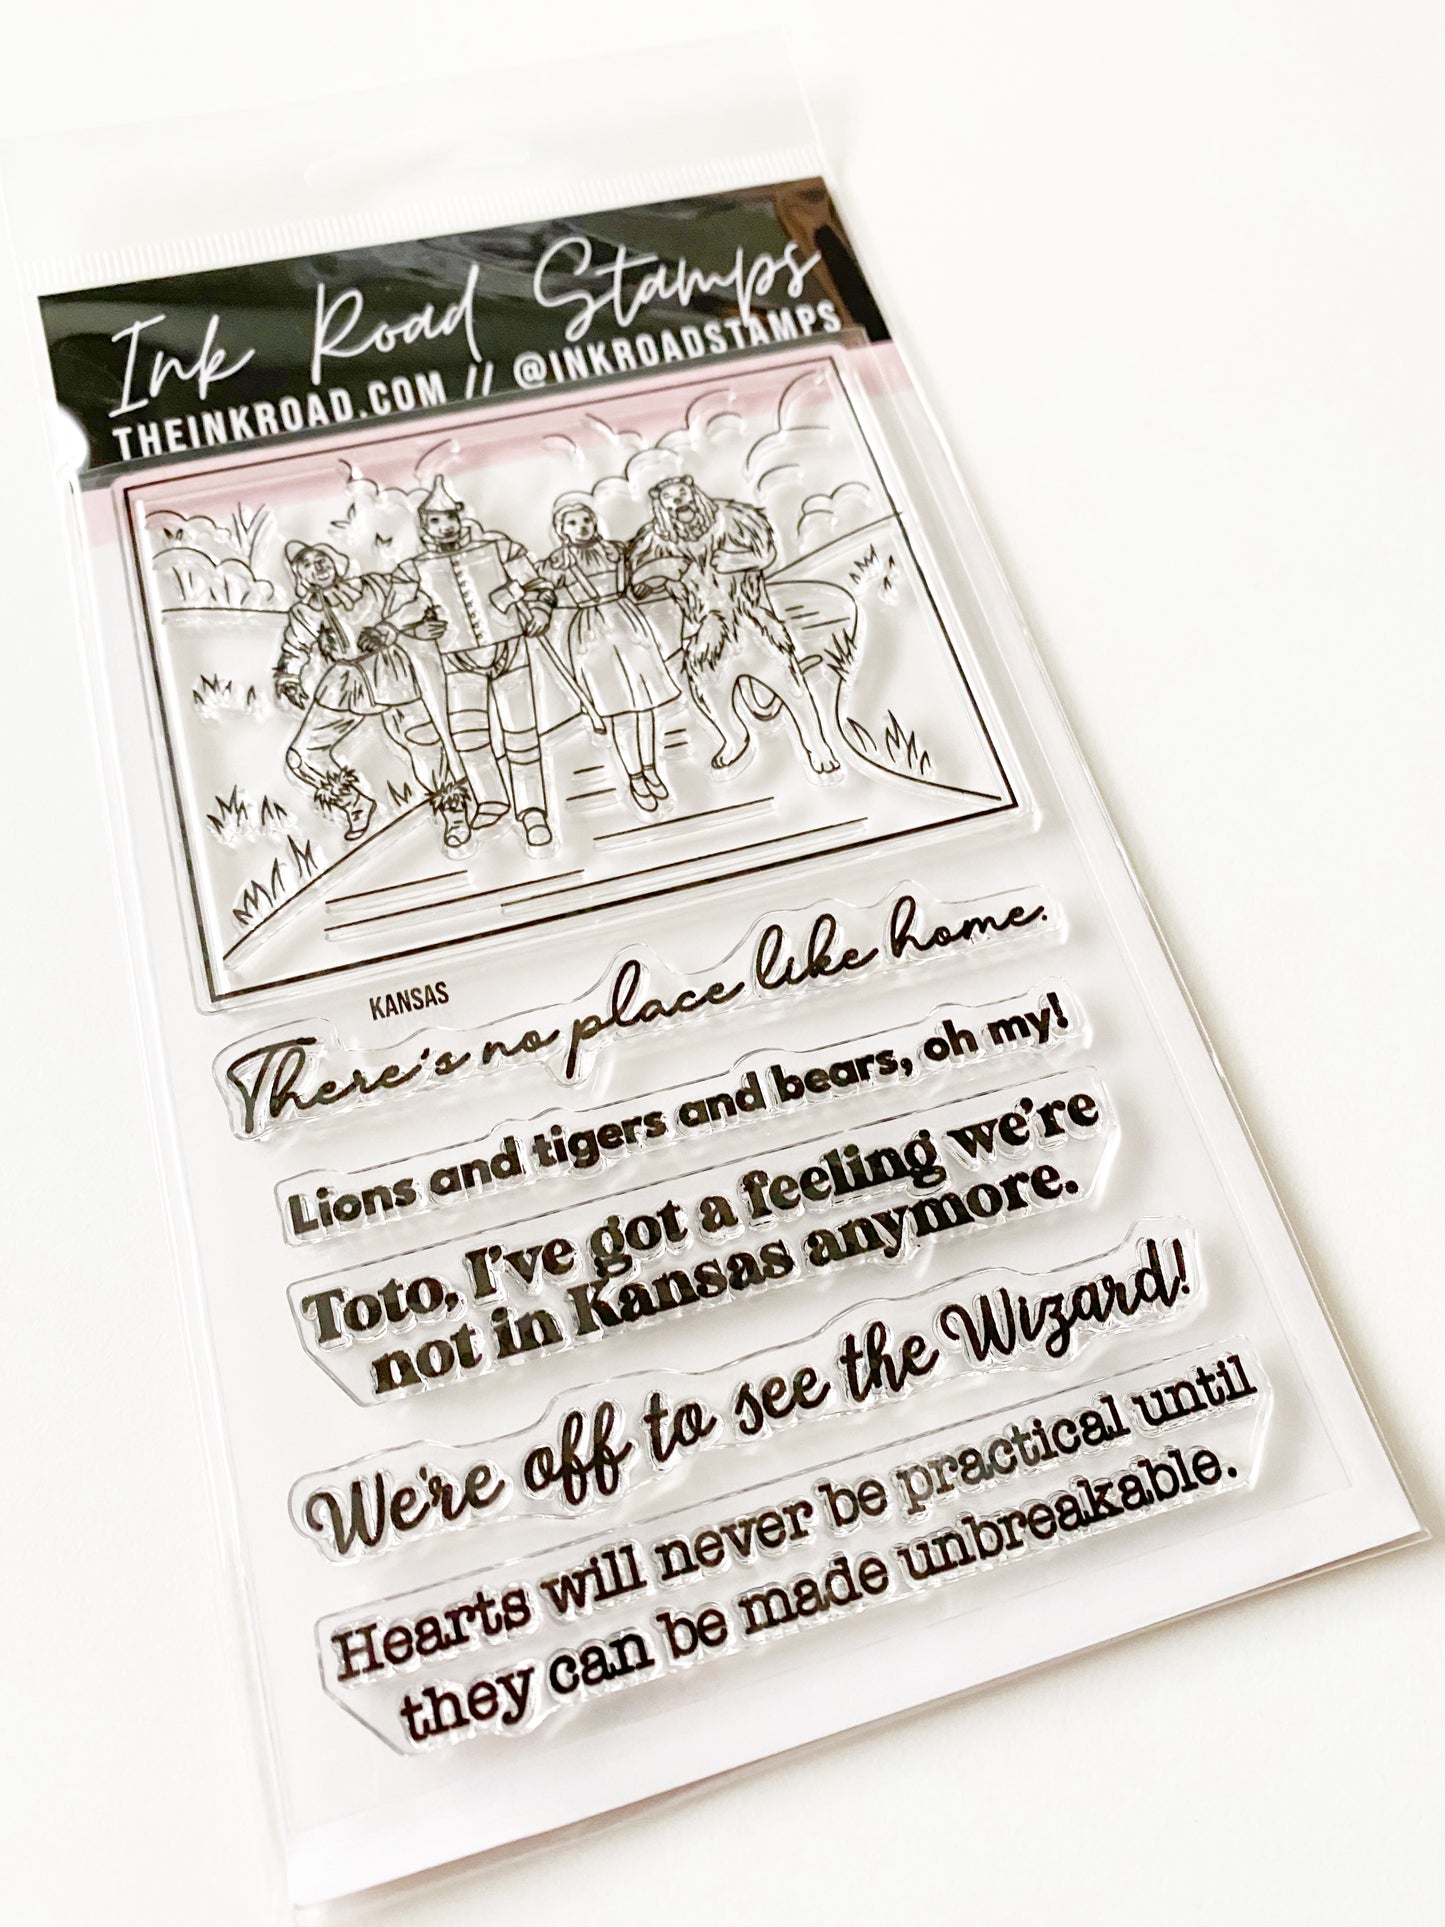 Ink Road Stamps
THEINKROAD.COM // @INKROADSTAMPS
KANSAS
There's no place like home.
Lions and tigers and bears, oh my!
Toto, I've got a feeling we're
not in Kansas anymore.
We're off to see the Wizard!
Hearts will never be practical until
they can be made unbreakable.